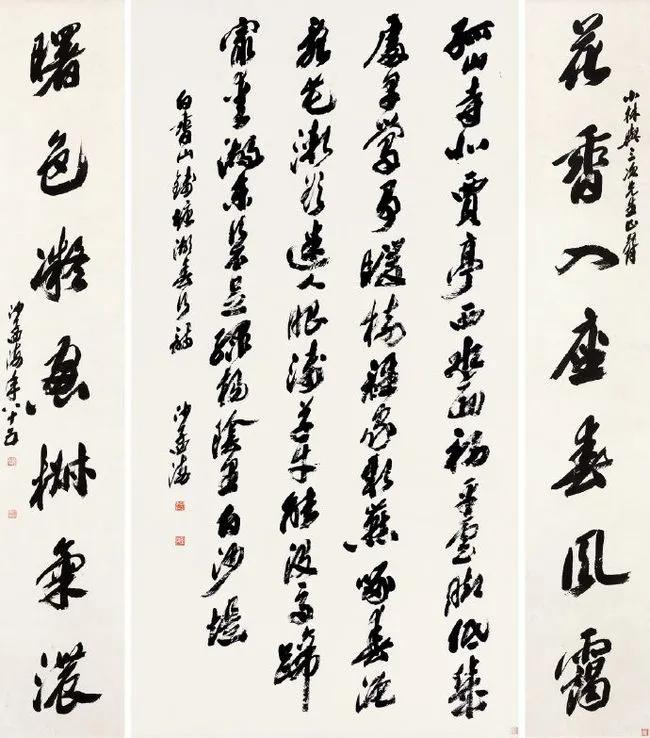 花香入座春風靄
小林與三次先生正
孤山寺北賈亭西水面初平雲腳低幾
處早鶯爭暖樹誰家新燕啄春泥
亂花漸欲迷人眼淺草才能沒馬蹄
最愛湖東行不足綠楊陰里白沙堤
白香山錢塘湖春行詩 沙孟海
曙色凝窗樹氣濃
沙孟海年八十五